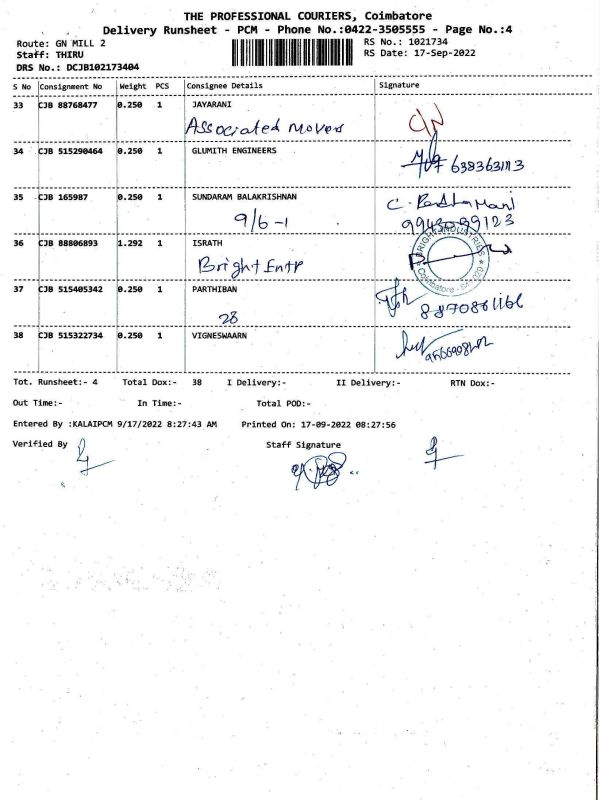 THE PROFESSIONAL COURIERS, Coimbatore
Delivery Runsheet - PCM - Phone No.:0422-3505555 - Page No.:4
Route: GN MILL 2
RS No.: 1021734
Staff: THIRU
RS Date: 17-Sep-2022
DRS No.: DCJB102173404
S No Consignment No Weight PCS Consignee Details Signature
33 CJB 88768477 0.250 1 JAYARANI
Associated Movers
34 CJB 515290464 0.250 1 GLUMITH ENGINEERS
35 CJB 165987 0.250 1 SUNDARAM BALAKRISHNAN
9/6-1
9943099123
36 CJB 88806893 1.292 1 ISRATH
Bright Entp
BRIGHT INDUSTRIES
Coimbatore
37 CJB 515405342 0.250 1 PARTHIBAN
28
8870861166
38 CJB 515322734 0.250 1 VIGNESWAARN
Tot. Runsheet:- 4 Total Dox:- 38 I Delivery:- II Delivery:- RTN Dox:-
Out Time:- In Time:- Total POD:-
Entered By :KALAIPCM 9/17/2022 8:27:43 AM Printed On: 17-09-2022 08:27:56
Verified By Staff Signature